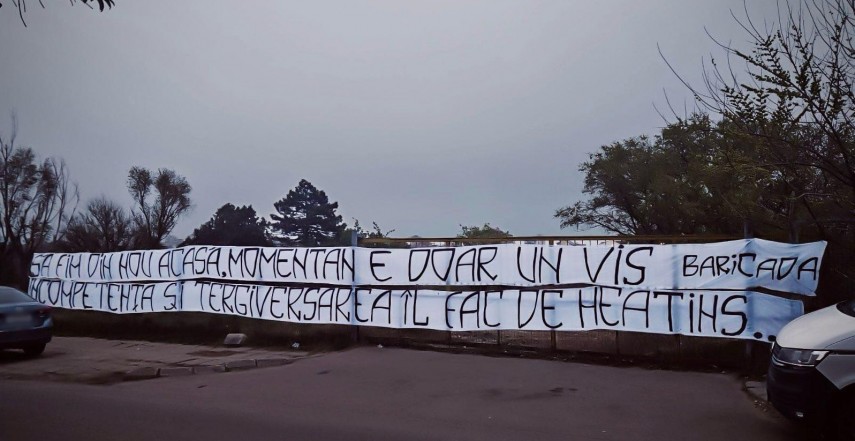 SA FIM DIN NOU ACASA, MOMENTAN E DOAR UN VIS BARICADA
INCOMPETENTA SI TERGIVERSAREA IL FAC DE NEATINS.